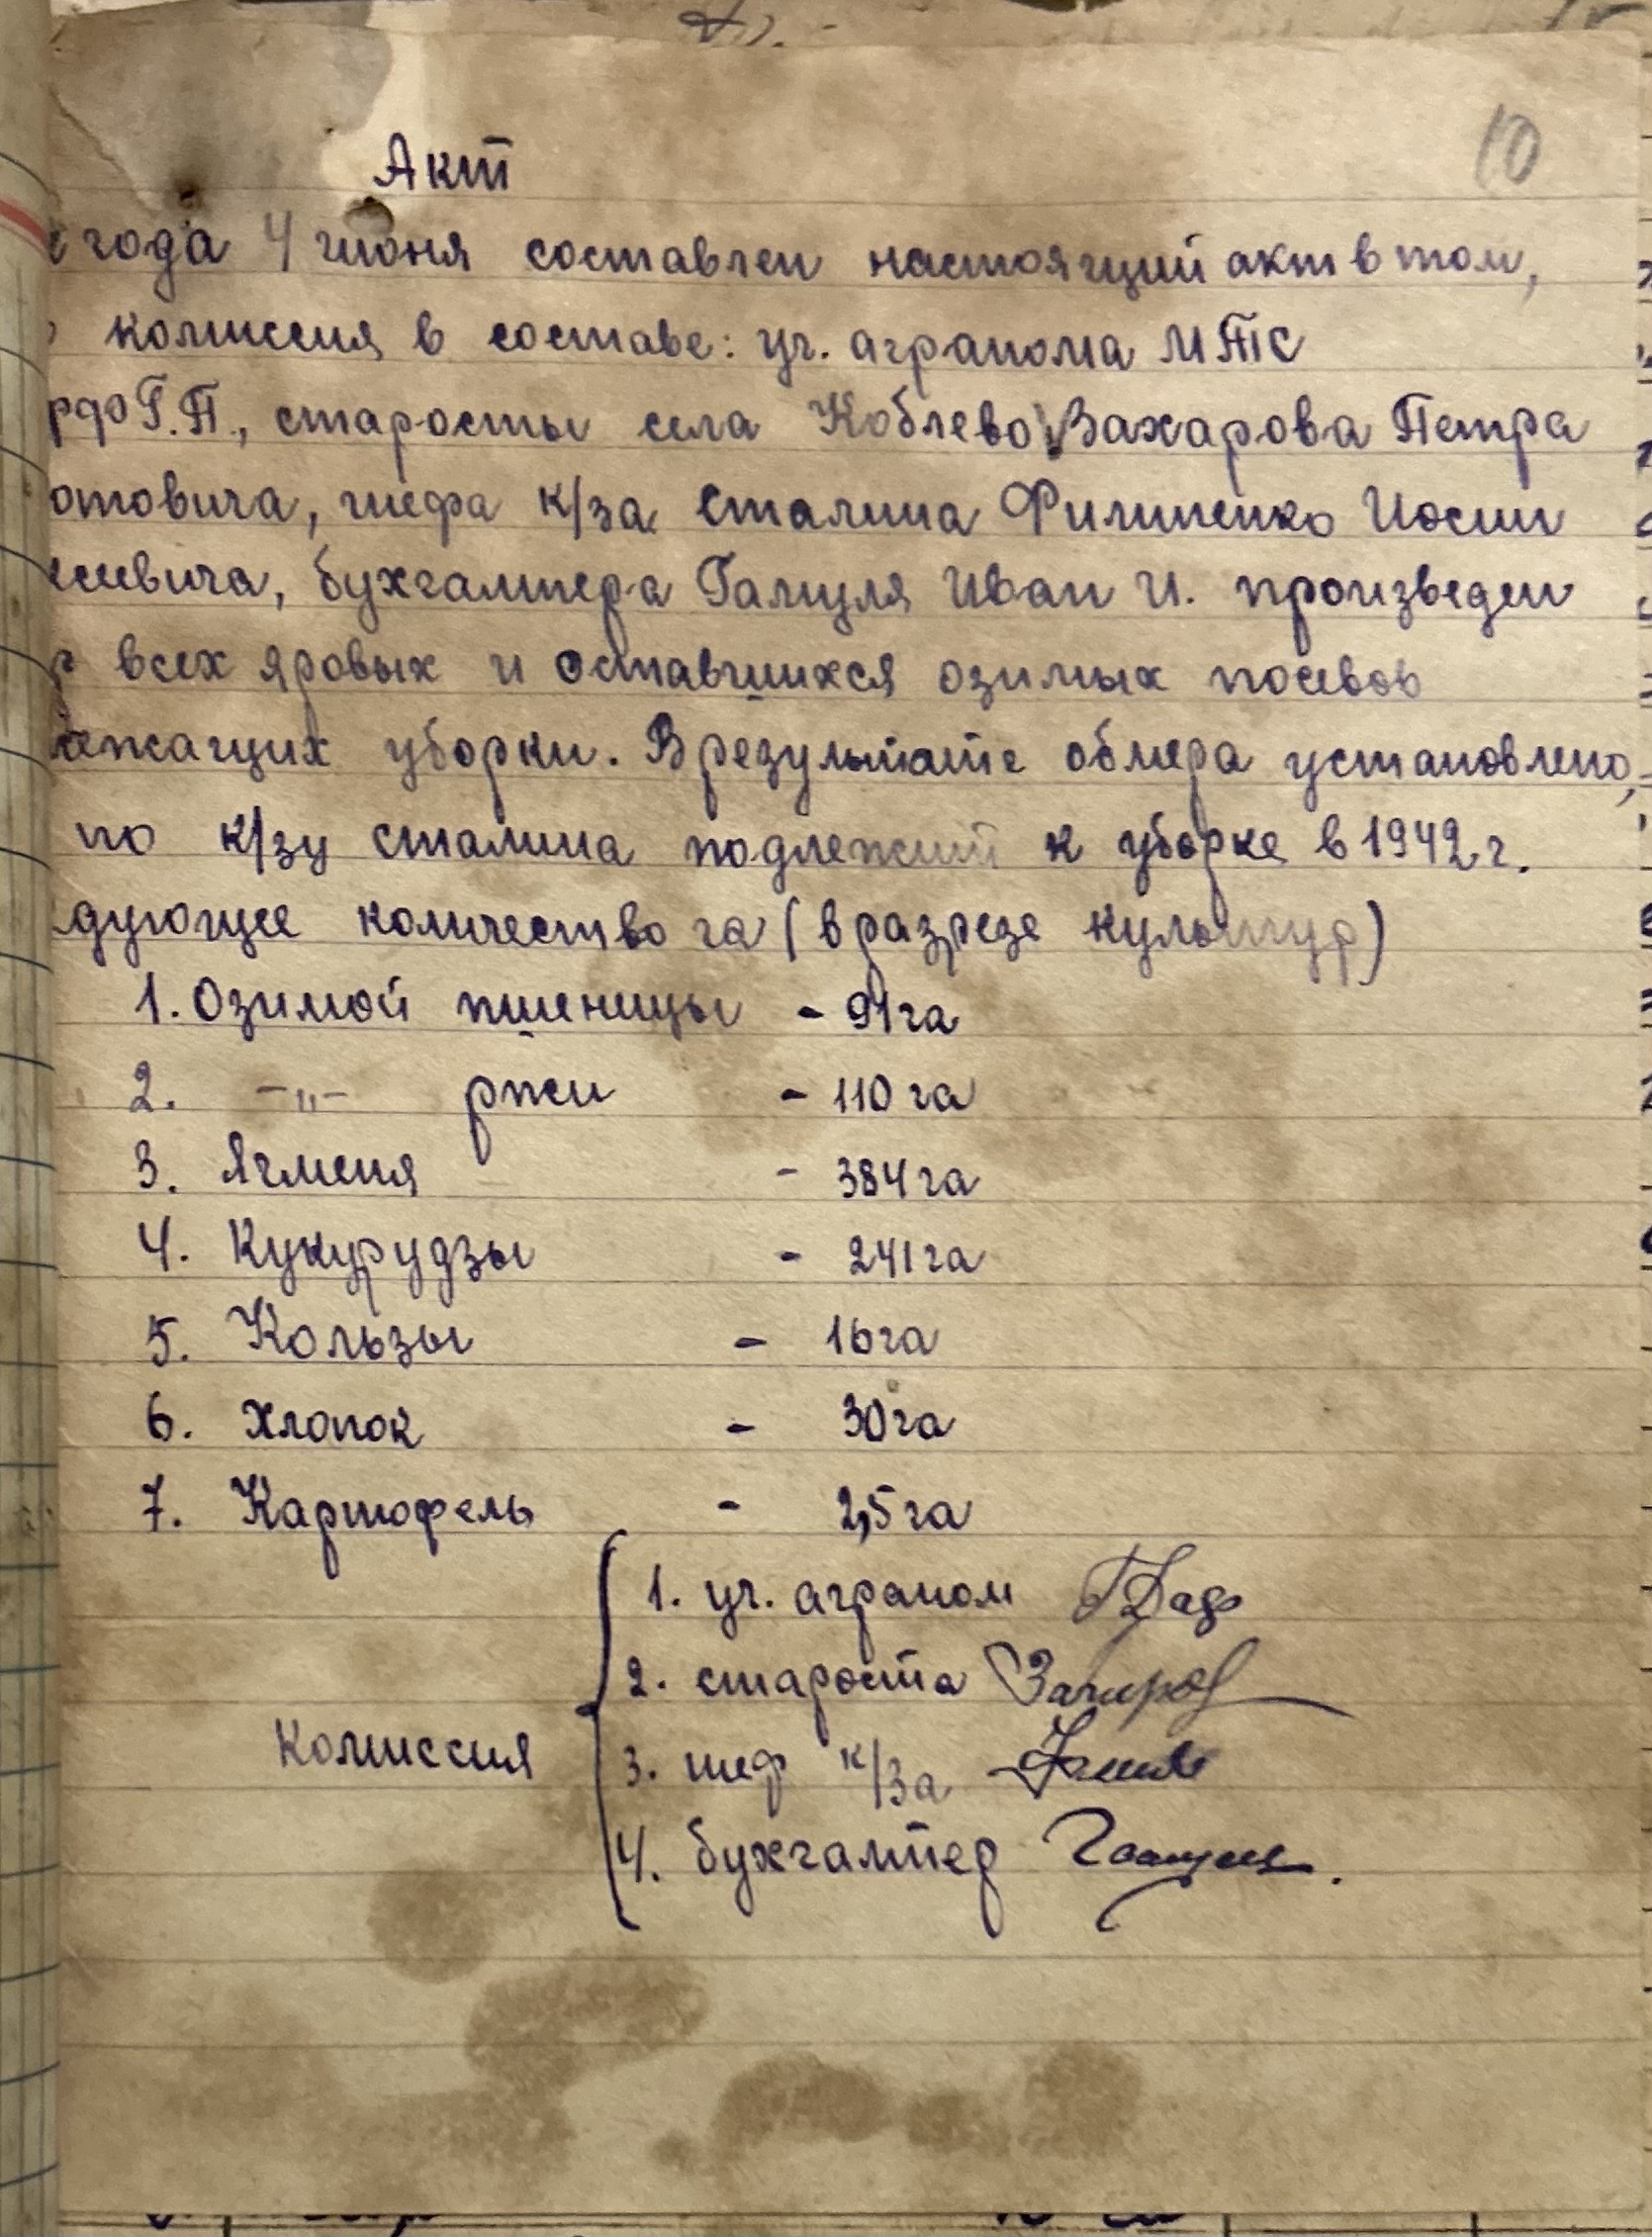 10
Акт
года 4 июня составлен настоящий акт в том,
комиссия в составе: уч. агранома МТС
рф Г.П., старосты села Коблево Захарова Петра
отовича, шефа к/за Сталина Филипенко Иосии
еевича, бухгалтера Галуля Иван И. произведен
всех яровых и оставшихся озимых посевов
лежащих уборки. В результате обмера установлено,
по к/зу Сталина подлежит к уборке в 1942 г.
дующее количество га (в разрезе культур)
1. Озимой пшеницы - 91 га
2. -"- ржи - 110 га
3. Ячменя - 384 га
4. Кукурудзы - 241 га
5. Кользы - 16 га
6. Хлопок - 30 га
7. Картофель - 2,5 га
Комиссия
1. уч. аграном
2. староста Захаров
3. шеф к/за
4. бухгалтер